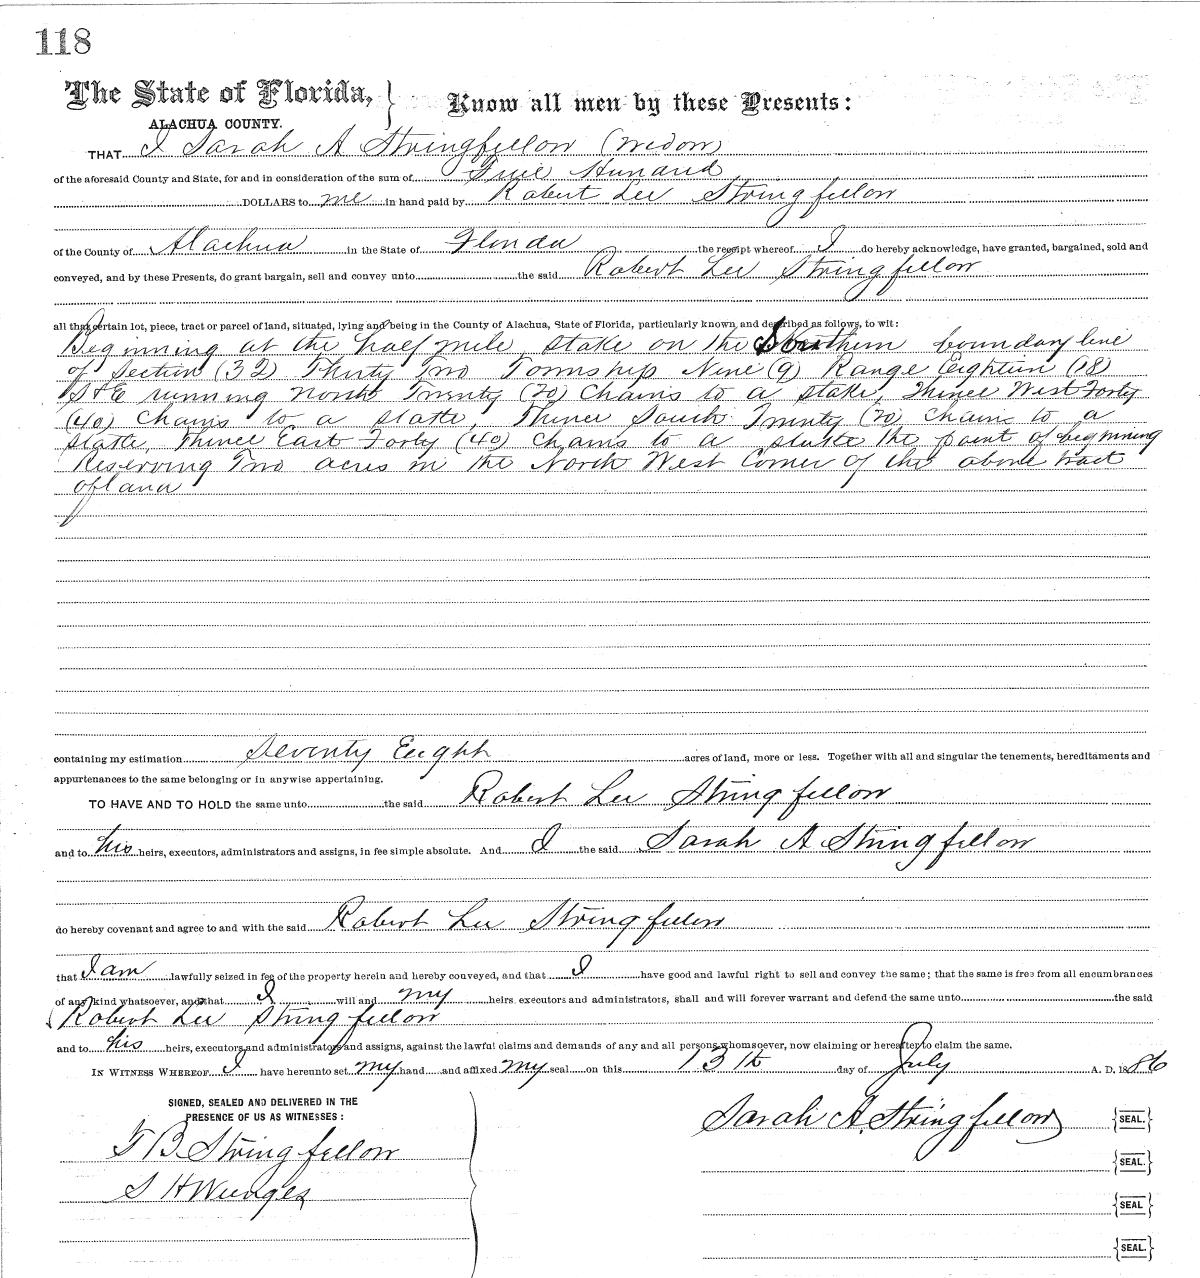 118
The State of Florida, } Know all men by these Presents:
ALACHUA COUNTY.
THAT I Sarah A Stringfellow (widow)
of the aforesaid County and State, for and in consideration of the sum of Five Hundred
DOLLARS to me in hand paid by Robert Lee Stringfellow
of the County of Alachua in the State of Florida the receipt whereof I do hereby acknowledge, have granted, bargained, sold and
conveyed, and by these Presents, do grant bargain, sell and convey unto the said Robert Lee Stringfellow
all that certain lot, piece, tract or parcel of land, situated, lying and being in the County of Alachua, State of Florida, particularly known and described as follows, to wit:
Beginning at the half mile stake on the Southern boundary line
of Section (32) Thirty Two Township Nine (9) Range Eighteen (18)
S&E running North Twenty (20) Chains to a stake, Thence West Forty
(40) Chains to a stake, Thence South Twenty (20) Chains to a
stake, Thence East Forty (40) Chains to a stake the point of beginning
Reserving Two acres in the North West Corner of the above tract
of land
containing my estimation Seventy Eight acres of land, more or less. Together with all and singular the tenements, hereditaments and
appurtenances to the same belonging or in anywise appertaining.
TO HAVE AND TO HOLD the same unto the said Robert Lee Stringfellow
and to his heirs, executors, administrators and assigns, in fee simple absolute. And I the said Sarah A Stringfellow
do hereby covenant and agree to and with the said Robert Lee Stringfellow
that I am lawfully seized in fee of the property herein and hereby conveyed, and that I have good and lawful right to sell and convey the same; that the same is free from all encumbrances
of any kind whatsoever, and that I will and my heirs, executors and administrators, shall and will forever warrant and defend the same unto the said
Robert Lee Stringfellow
and to his heirs, executors and administrators and assigns, against the lawful claims and demands of any and all persons whomsoever, now claiming or hereafter to claim the same.
IN WITNESS WHEREOF I have hereunto set my hand and affixed my seal on this 13th day of July A. D. 1886
SIGNED, SEALED AND DELIVERED IN THE
PRESENCE OF US AS WITNESSES:
Sarah A. Stringfellow {SEAL.}
T B Stringfellow
{SEAL.}
S H
{SEAL}
{SEAL.}